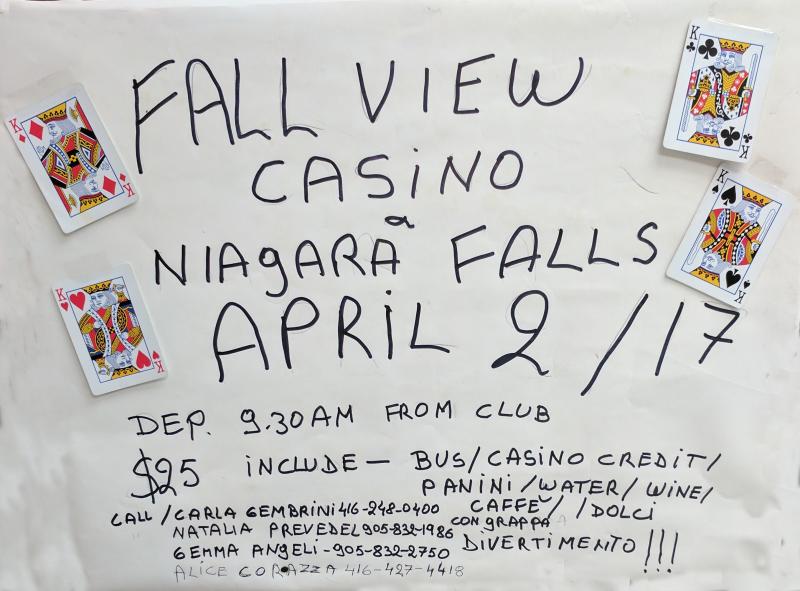 FALL VIEW
CASINO
a
NIAGARA FALLS
APRIL 2/17
DEP. 9.30AM FROM CLUB
$25 INCLUDE - BUS/CASINO CREDIT/
PANINI/WATER/WINE/
CAFFE'/ /DOLCI
CON GRAPPA
DIVERTIMENTO!!!
CALL/CARLA GEMBRINI 416-248-0400
NATALIA PREVEDEL 905-832-1986
GEMMA ANGELI-905-832-2750
ALICE CORAZZA 416-427-4418
K
K
K
K
K
K
K
K